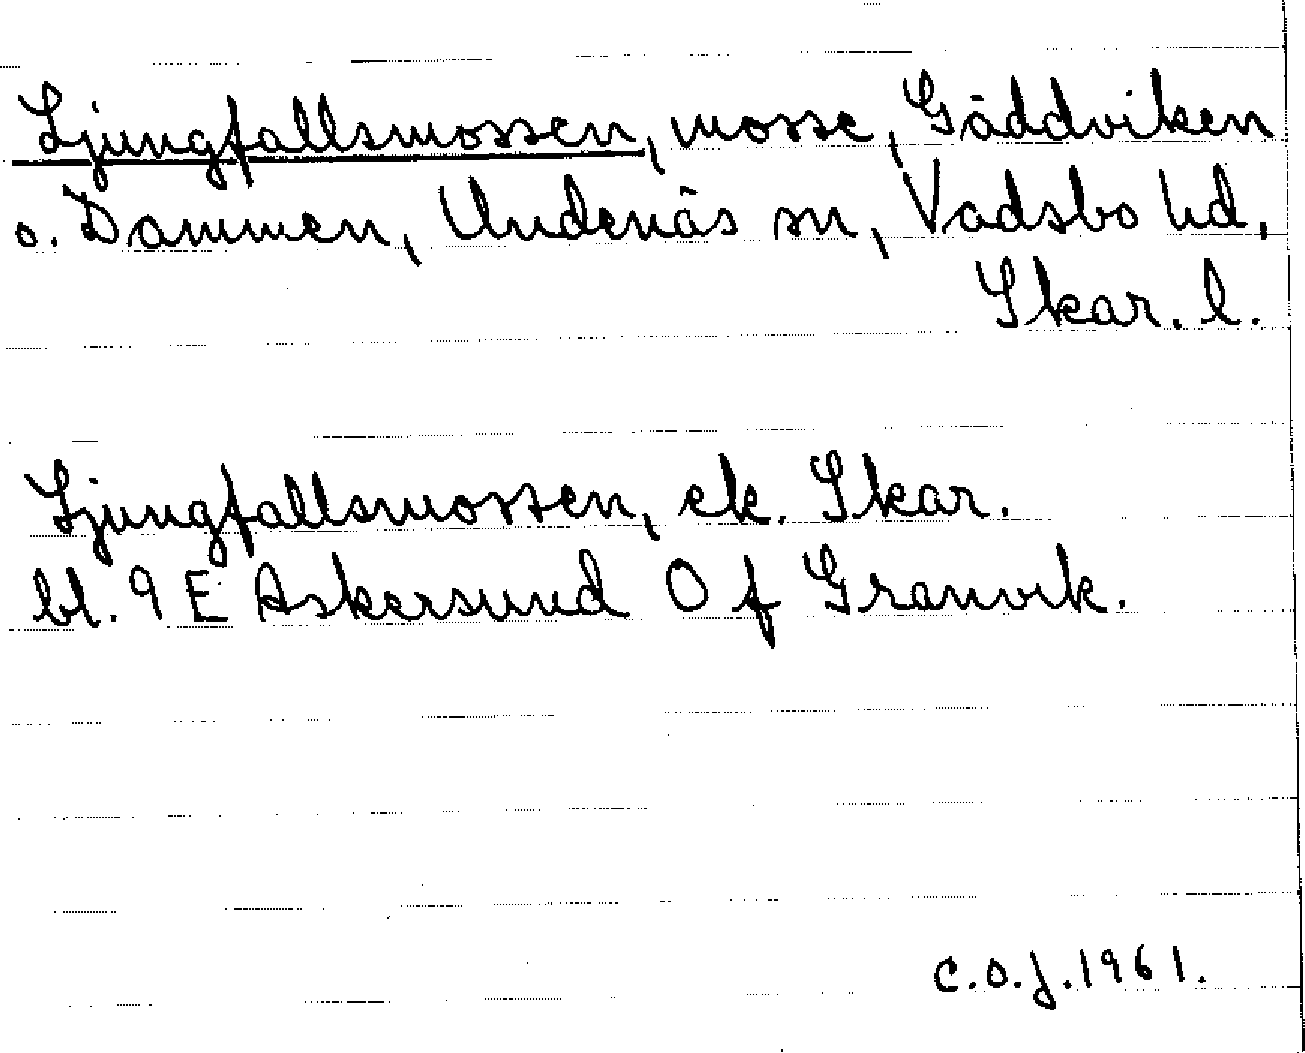 Ljungfallsmossen, mosse, Gäddviken
o. Dammen, Undenäs sn, Vadsbo hd,
Skar. l.
Ljungfallsmossen, ek. Skar.
bl. 9 E Askersund O f Granvik.
C.O.J. 1961.